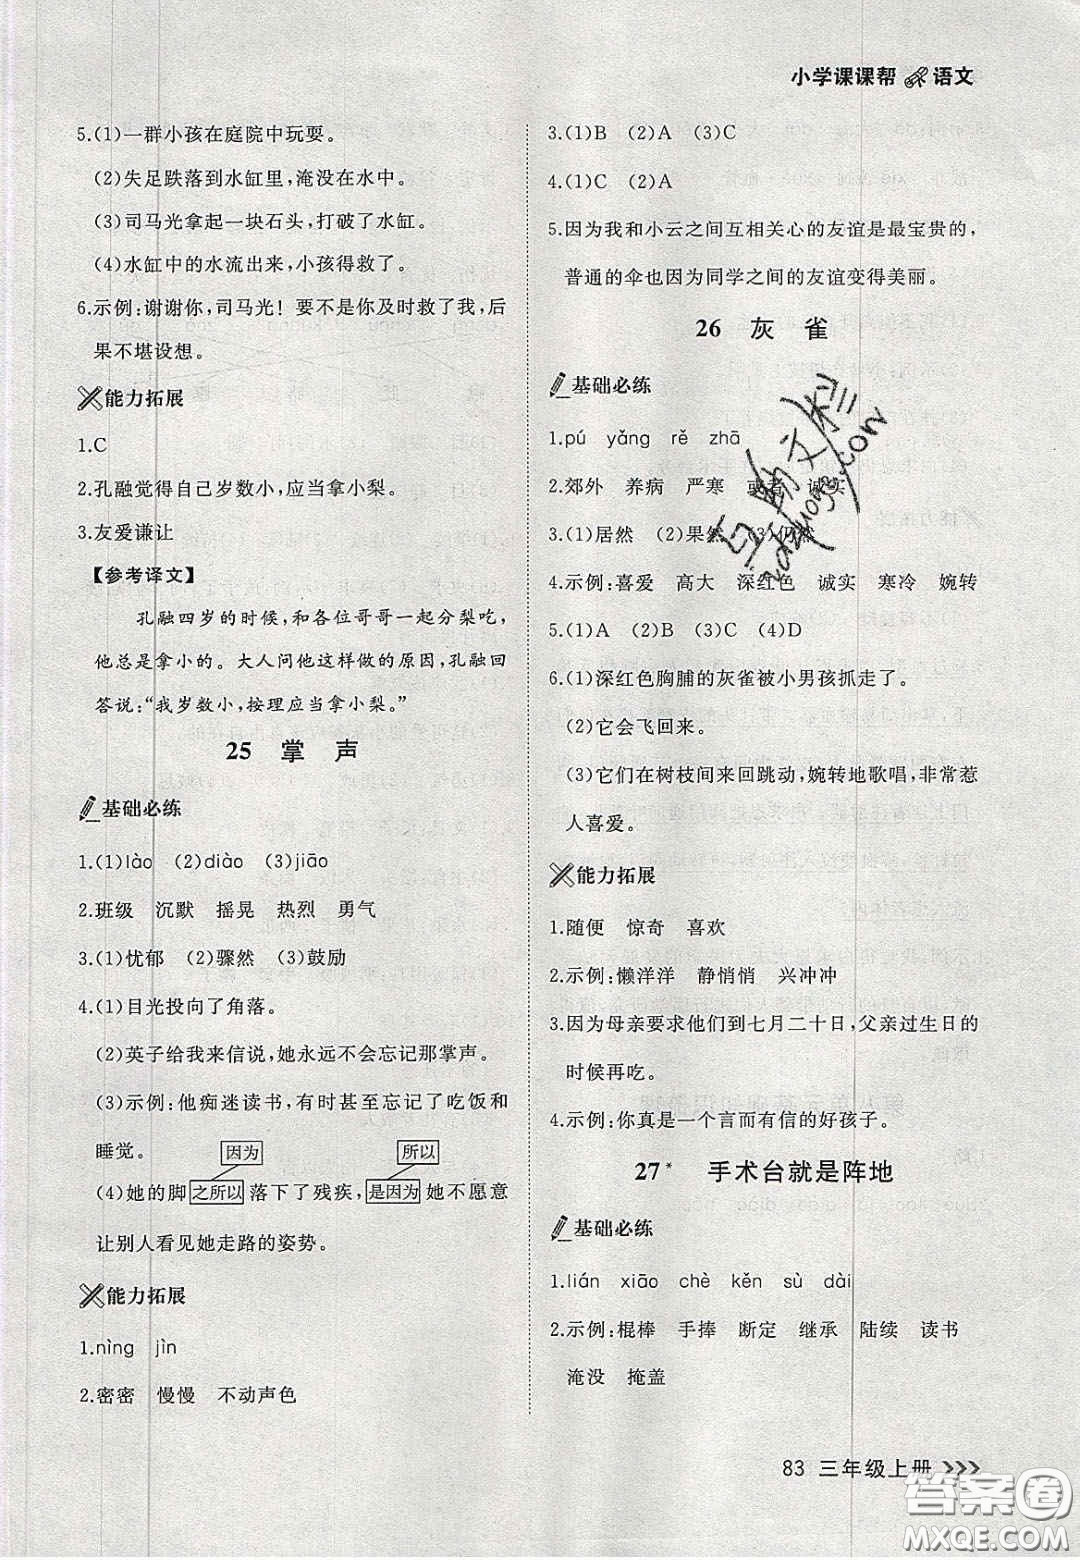 小学课课帮 语文
5.(1)一群小孩在庭院中玩耍。
(2)失足跌落到水缸里,淹没在水中。
(3)司马光拿起一块石头,打破了水缸。
(4)水缸中的水流出来,小孩得救了。
6.示例:谢谢你,司马光！要不是你及时救了我,后
果不堪设想。
能力拓展
1.C
2.孔融觉得自己岁数小,应当拿小梨。
3.友爱谦让
【参考译文】
孔融四岁的时候,和各位哥哥一起分梨吃,
他总是拿小的。大人问他这样做的原因,孔融回
答说:“我岁数小,按理应当拿小梨。”
25 掌 声
基础必练
1.(1)lào (2)diào (3)jiāo
2.班级 沉默 摇晃 热烈 勇气
3.(1)忧郁 (2)骤然 (3)鼓励
4.(1)目光投向了角落。
(2)英子给我来信说,她永远不会忘记那掌声。
(3)示例:他痴迷读书,有时甚至忘记了吃饭和
睡觉。
因为 所以
(4)她的脚之所以落下了残疾,是因为她不愿意
让别人看见她走路的姿势。
能力拓展
1.nìng jìn
2.密密 慢慢 不动声色
3.(1)B (2)A (3)C
4.(1)C (2)A
5.因为我和小云之间互相关心的友谊是最宝贵的,
普通的伞也因为同学之间的友谊变得美丽。
26 灰 雀
基础必练
1.pú yǎng rě zhā
2.郊外 养病 严寒 或者 诚实
3.(1)居然 (2)果然 (3)仍然
4.示例:喜爱 高大 深红色 诚实 寒冷 婉转
5.(1)A (2)B (3)C (4)D
6.(1)深红色胸脯的灰雀被小男孩抓走了。
(2)它会飞回来。
(3)它们在树枝间来回跳动,婉转地歌唱,非常惹
人喜爱。
能力拓展
1.随便 惊奇 喜欢
2.示例:懒洋洋 静悄悄 兴冲冲
3.因为母亲要求他们到七月二十日,父亲过生日的
时候再吃。
4.示例:你真是一个言而有信的好孩子。
27* 手术台就是阵地
基础必练
1.lián xiāo chè kěn sù dài
2.示例:棍棒 手捧 断定 继承 陆续 读书
淹没 掩盖
83 三年级上册
答案圈
MXQE.COM